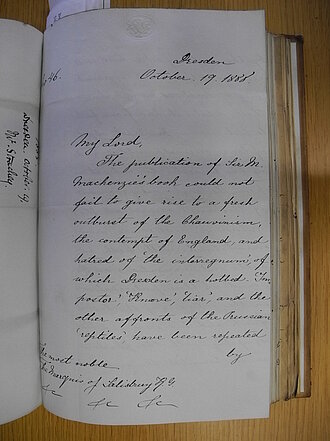 46.
Dresden
October 19. 1888.
My Lord,
The publication of Sir M.
Mackenzie's book could not
fail to give rise to a fresh
outburst of the Chauvinism,
the contempt of England, and
hatred of 'the interregnum', of
which Dresden is a hotbed. 'Im,
postor', 'Knave', 'liar', and the
other affronts of the Prussian
'reptiles' have been repeated
by
The most noble
The Marquis of Salisbury K.G.
&c &c &c
Dresden October 19.
Mr Strachey